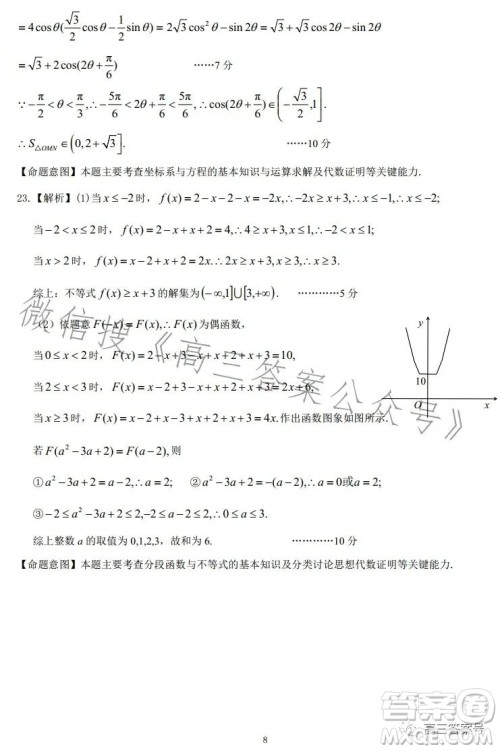 =4cosθ(√3/2 cosθ−1/2 sinθ)=2√3cos²θ−2sinθcosθ=√3+√3cos2θ−sin2θ
=√3+2cos(2θ+π/6) ……7 分
∵−π/2<θ<π/3,∴−5π/6<2θ+π/6<5π/6,∴cos(2θ+π/6)∈(−√3/2,1].
∴S△OMN∈(0,2+√3]. ……10 分
【命题意图】本题主要考查坐标系与方程的基本知识与运算求解及代数证明等关键能力.
23.【解析】(1)当x≤−2时，f(x)=2−x−2−x=−2x,∴−2x≥x+3,∴x≤−1,∴x≤−2;
当−2<x≤2时，f(x)=2−x+x+2=4,∴4≥x+3,∴x≤1,∴−2<x≤1;
当x>2时，f(x)=x−2+x+2=2x.∴2x≥x+3,∴x≥3,∴x≥3.
综上：不等式f(x)≥x+3的解集为(−∞,1]∪[3,+∞). …………5 分
（2）依题意F(−x)=F(x),∴F(x)为偶函数，
当0≤x<2时，F(x)=2−x+3−x+x+2+x+3=10,
当2≤x<3时，F(x)=x−2+3−x+x+2+x+3=2x+6,
当x≥3时，F(x)=x−2+x−3+x+2+x+3=4x.作出函数图象如图所示.
y
10
O
x
若F(a²−3a+2)=F(a−2),则
①a²−3a+2=a−2,∴a=2; ②a²−3a+2=−(a−2),∴a=0或a=2;
③−2≤a²−3a+2≤2且−2≤a−2≤2,∴0≤a≤3.
综上整数a的取值为 0,1,2,3，故和为 6. …………10 分
【命题意图】本题主要考查分段函数与不等式的基本知识及分类讨论思想代数证明等关键能力.
微信搜《高三答案公众号》
8
答案圈
高三答案号
MXQE.COM